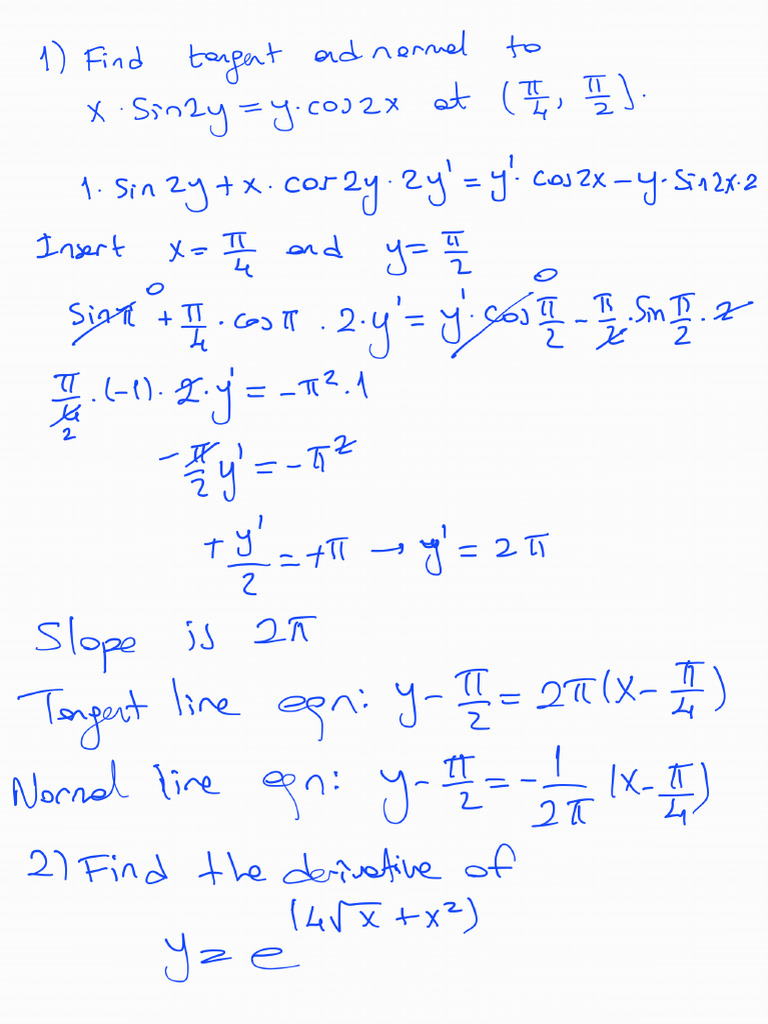 1) Find tangent and normal to
x · Sin2y = y · cos2x at (π/4, π/2).
1. sin 2y + x · cos 2y · 2y' = y' · cos2x − y · Sin2x · 2
Insert x = π/4 and y = π/2
sinπ 0 + π/4 · cosπ · 2 · y' = y' · cos π/2 0 − π/2 · Sin π/2 · 2
π/4 2 · (-1) · 2 · y' = −π² · 1
− π/2 y' = − π²
+ y'/2 = +π → y' = 2π
Slope is 2π
Tangent line eqn: y − π/2 = 2π(x − π/4)
Normal line eqn: y − π/2 = − 1/2π (x − π/4)
2) Find the derivative of
y = e^(4√x + x²)